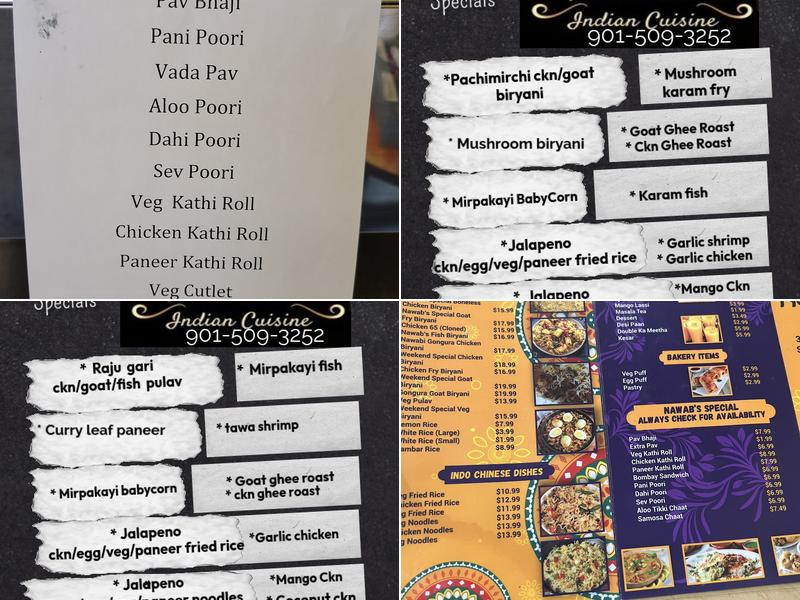 Pav Bhaji
Pani Poori
Vada Pav
Aloo Poori
Dahi Poori
Sev Poori
Veg Kathi Roll
Chicken Kathi Roll
Paneer Kathi Roll
Veg Cutlet
Specials
Indian Cuisine
901-509-3252
*Pachimirchi ckn/goat
biryani
* Mushroom
karam fry
* Mushroom biryani
* Goat Ghee Roast
* Ckn Ghee Roast
* Mirpakayi BabyCorn
* Karam fish
*Jalapeno
ckn/egg/veg/paneer fried rice
* Garlic shrimp
* Garlic chicken
* Jalapeno
*Mango Ckn
Specials
Indian Cuisine
901-509-3252
* Raju gari
ckn/goat/fish pulav
* Mirpakayi fish
* Curry leaf paneer
* tawa shrimp
* Mirpakayi babycorn
* Goat ghee roast
* ckn ghee roast
* Jalapeno
ckn/egg/veg/paneer fried rice
*Garlic chicken
* Jalapeno
*Mango Ckn
Chicken Biryani
Nawab's Special Goat
Fry Biryani $15.99
Chicken 65 (Cloned) $17.99
Nawab's Fish Biryani $15.99
Nawabi Gongura Chicken $16.99
Biryani
Weekend Special Chicken $17.99
Biryani
Chicken Fry Biryani $18.99
Weekend Special Goat $16.99
Biryani
Gongura Goat Biryani $19.99
Veg Pulav $19.99
Weekend Special Veg $13.99
Biryani
Lemon Rice $15.99
White Rice (Large) $7.99
White Rice (Small) $3.99
Sambar Rice $1.99
$8.99
INDO CHINESE DISHES
Fried Rice $10.99
Chicken Fried Rice $12.99
Fried Rice $11.99
Noodles $13.99
Noodles $13.99
Noodles $13.99
Mango Lassi
Masala Tea $3.99
Dessert $1.99
Desi Paan $3.99
Double Ka Meetha $2.99
Kesar $5.99
$5.99
BAKERY ITEMS
Veg Puff $2.99
Egg Puff $2.99
Pastry $2.99
NAWAB'S SPECIAL
ALWAYS CHECK FOR AVAILABILITY
Pav Bhaji $7.99
Extra Pav $1.99
Veg Kathi Roll $6.99
Chicken Kathi Roll $8.99
Paneer Kathi Roll $7.99
Bombay Sandwich $6.99
Pani Poori $6.99
Dahi Poori $6.99
Sev Poori $6.99
Aloo Tikki Chaat $6.99
Samosa Chaat $7.49